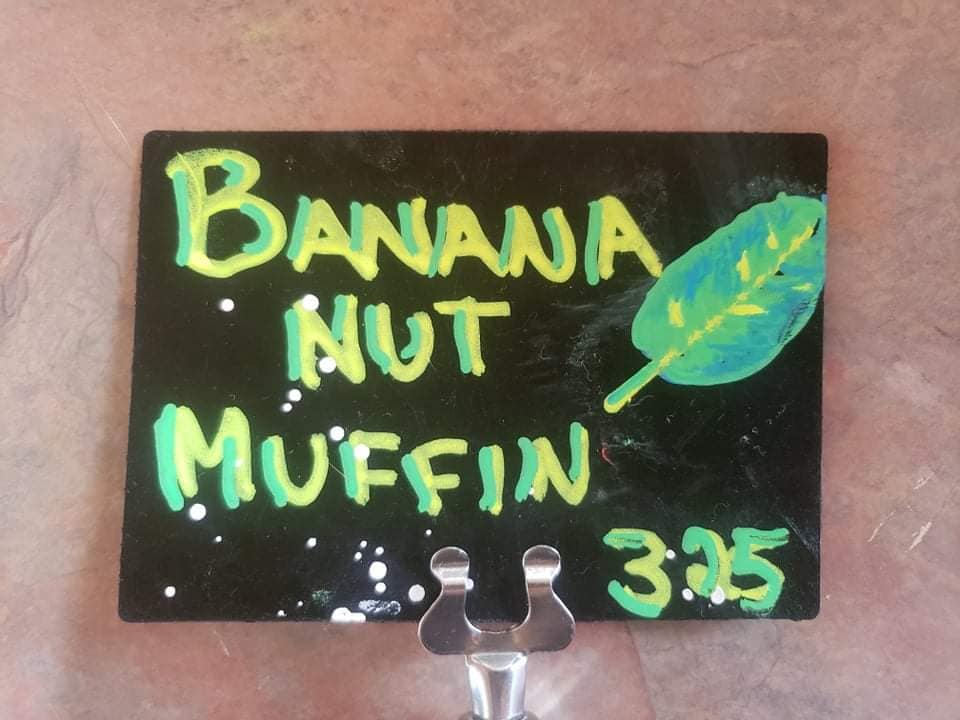 BANANA
NUT
MUFFIN
3.25